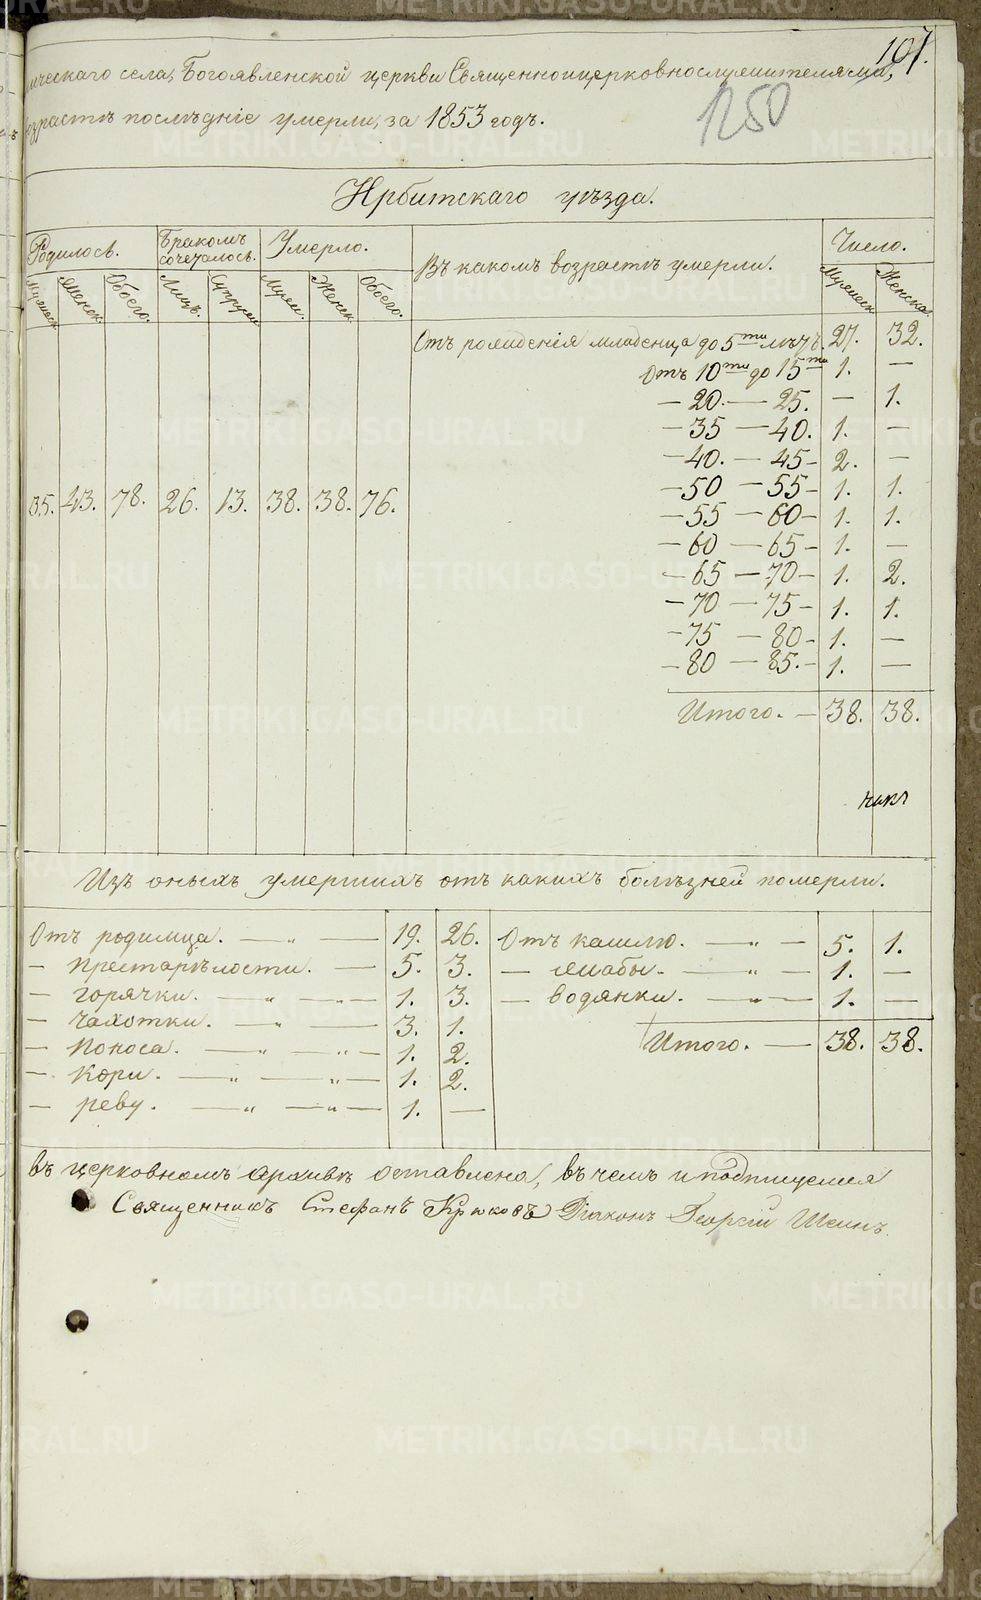 107.
ическаго села, Богоявленской церкви Священноицерковнослужителями,
возрастѣ послѣдніе умерли, за 1853 годъ.
1250
Ирбитскаго уѣзда.
Родилось. Бракомъ сочеталось. Умерло. Въ какомъ возрастѣ умерли. Число.
Мужеск. Женск. Обоего. Лицъ. Супруж. Муж. Женск. Обоего. Мужеск. Женска.
Отъ рожденія младенца до 5ти лѣтъ. 27. 32.
Отъ 10ти до 15ти 1. —
— 20. — 25. — 1.
— 35 — 40. 1. —
— 40. — 45 — 2. —
— 50 — 55 — 1. 1.
35. 43. 78. 26. 13. 38. 38. 76.
— 55 — 60 — 1. 1.
— 60 — 65 — 1. —
— 65 — 70 — 1. 2.
— 70 — 75 — 1. 1.
— 75 — 80 — 1. —
— 80 — 85. — 1. —
Итого. — 38. 38.
Изъ оныхъ умершихъ отъ какихъ болѣзней померли.
Отъ родимца. — „ — 19. 26. Отъ кашлю. — „ — 5. 1.
— престарѣлости. — 5. 3. — жабы. — „ — 1. —
— горячки. — „ — „ — 1. 3. — водянки. — „ — 1. —
— чахотки. — „ — 3. 1. Итого. — 38. 38.
— поноса. — „ — „ — 1. 2.
— кори. — „ — „ — 1. 2.
— реву. — „ — „ — 1. —
въ церковномъ архивѣ оставлена, въ чемъ и подпищемся
Священникъ Стефанъ Крюковъ Діаконъ Георгій Шеинъ.
METRIKI.GASO-URAL.RU